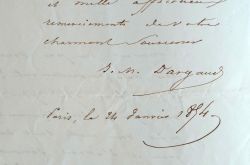 et mille affectueux
remerciements de votre
charmant souvenir
J. M. Dargaud
Paris, le 24 Janvier 1854